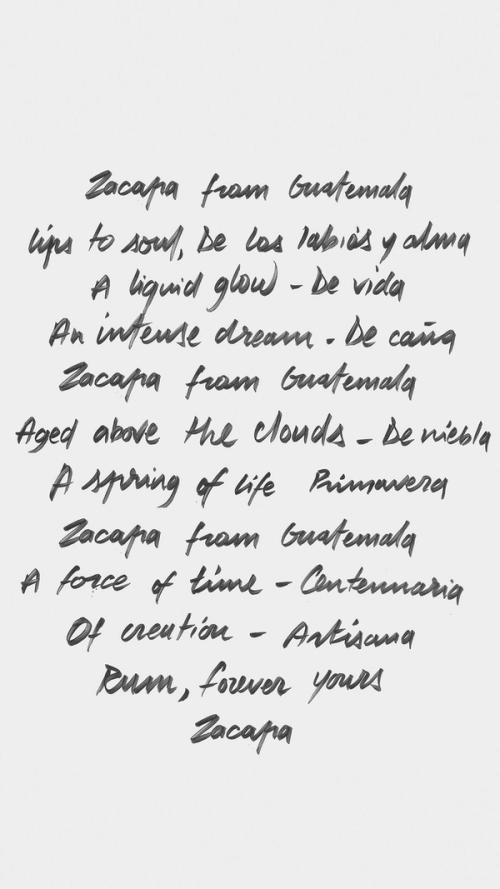 Zacapa from Guatemala
lips to soul, De Los labios y alma
A liquid glow - De vida
An intense dream. De caña
Zacapa from Guatemala
Aged above the clouds - De niebla
A spring of life Primavera
Zacapa from Guatemala
A force of time - Centennaria
Of creation - Artisana
Rum, forever yours
Zacapa